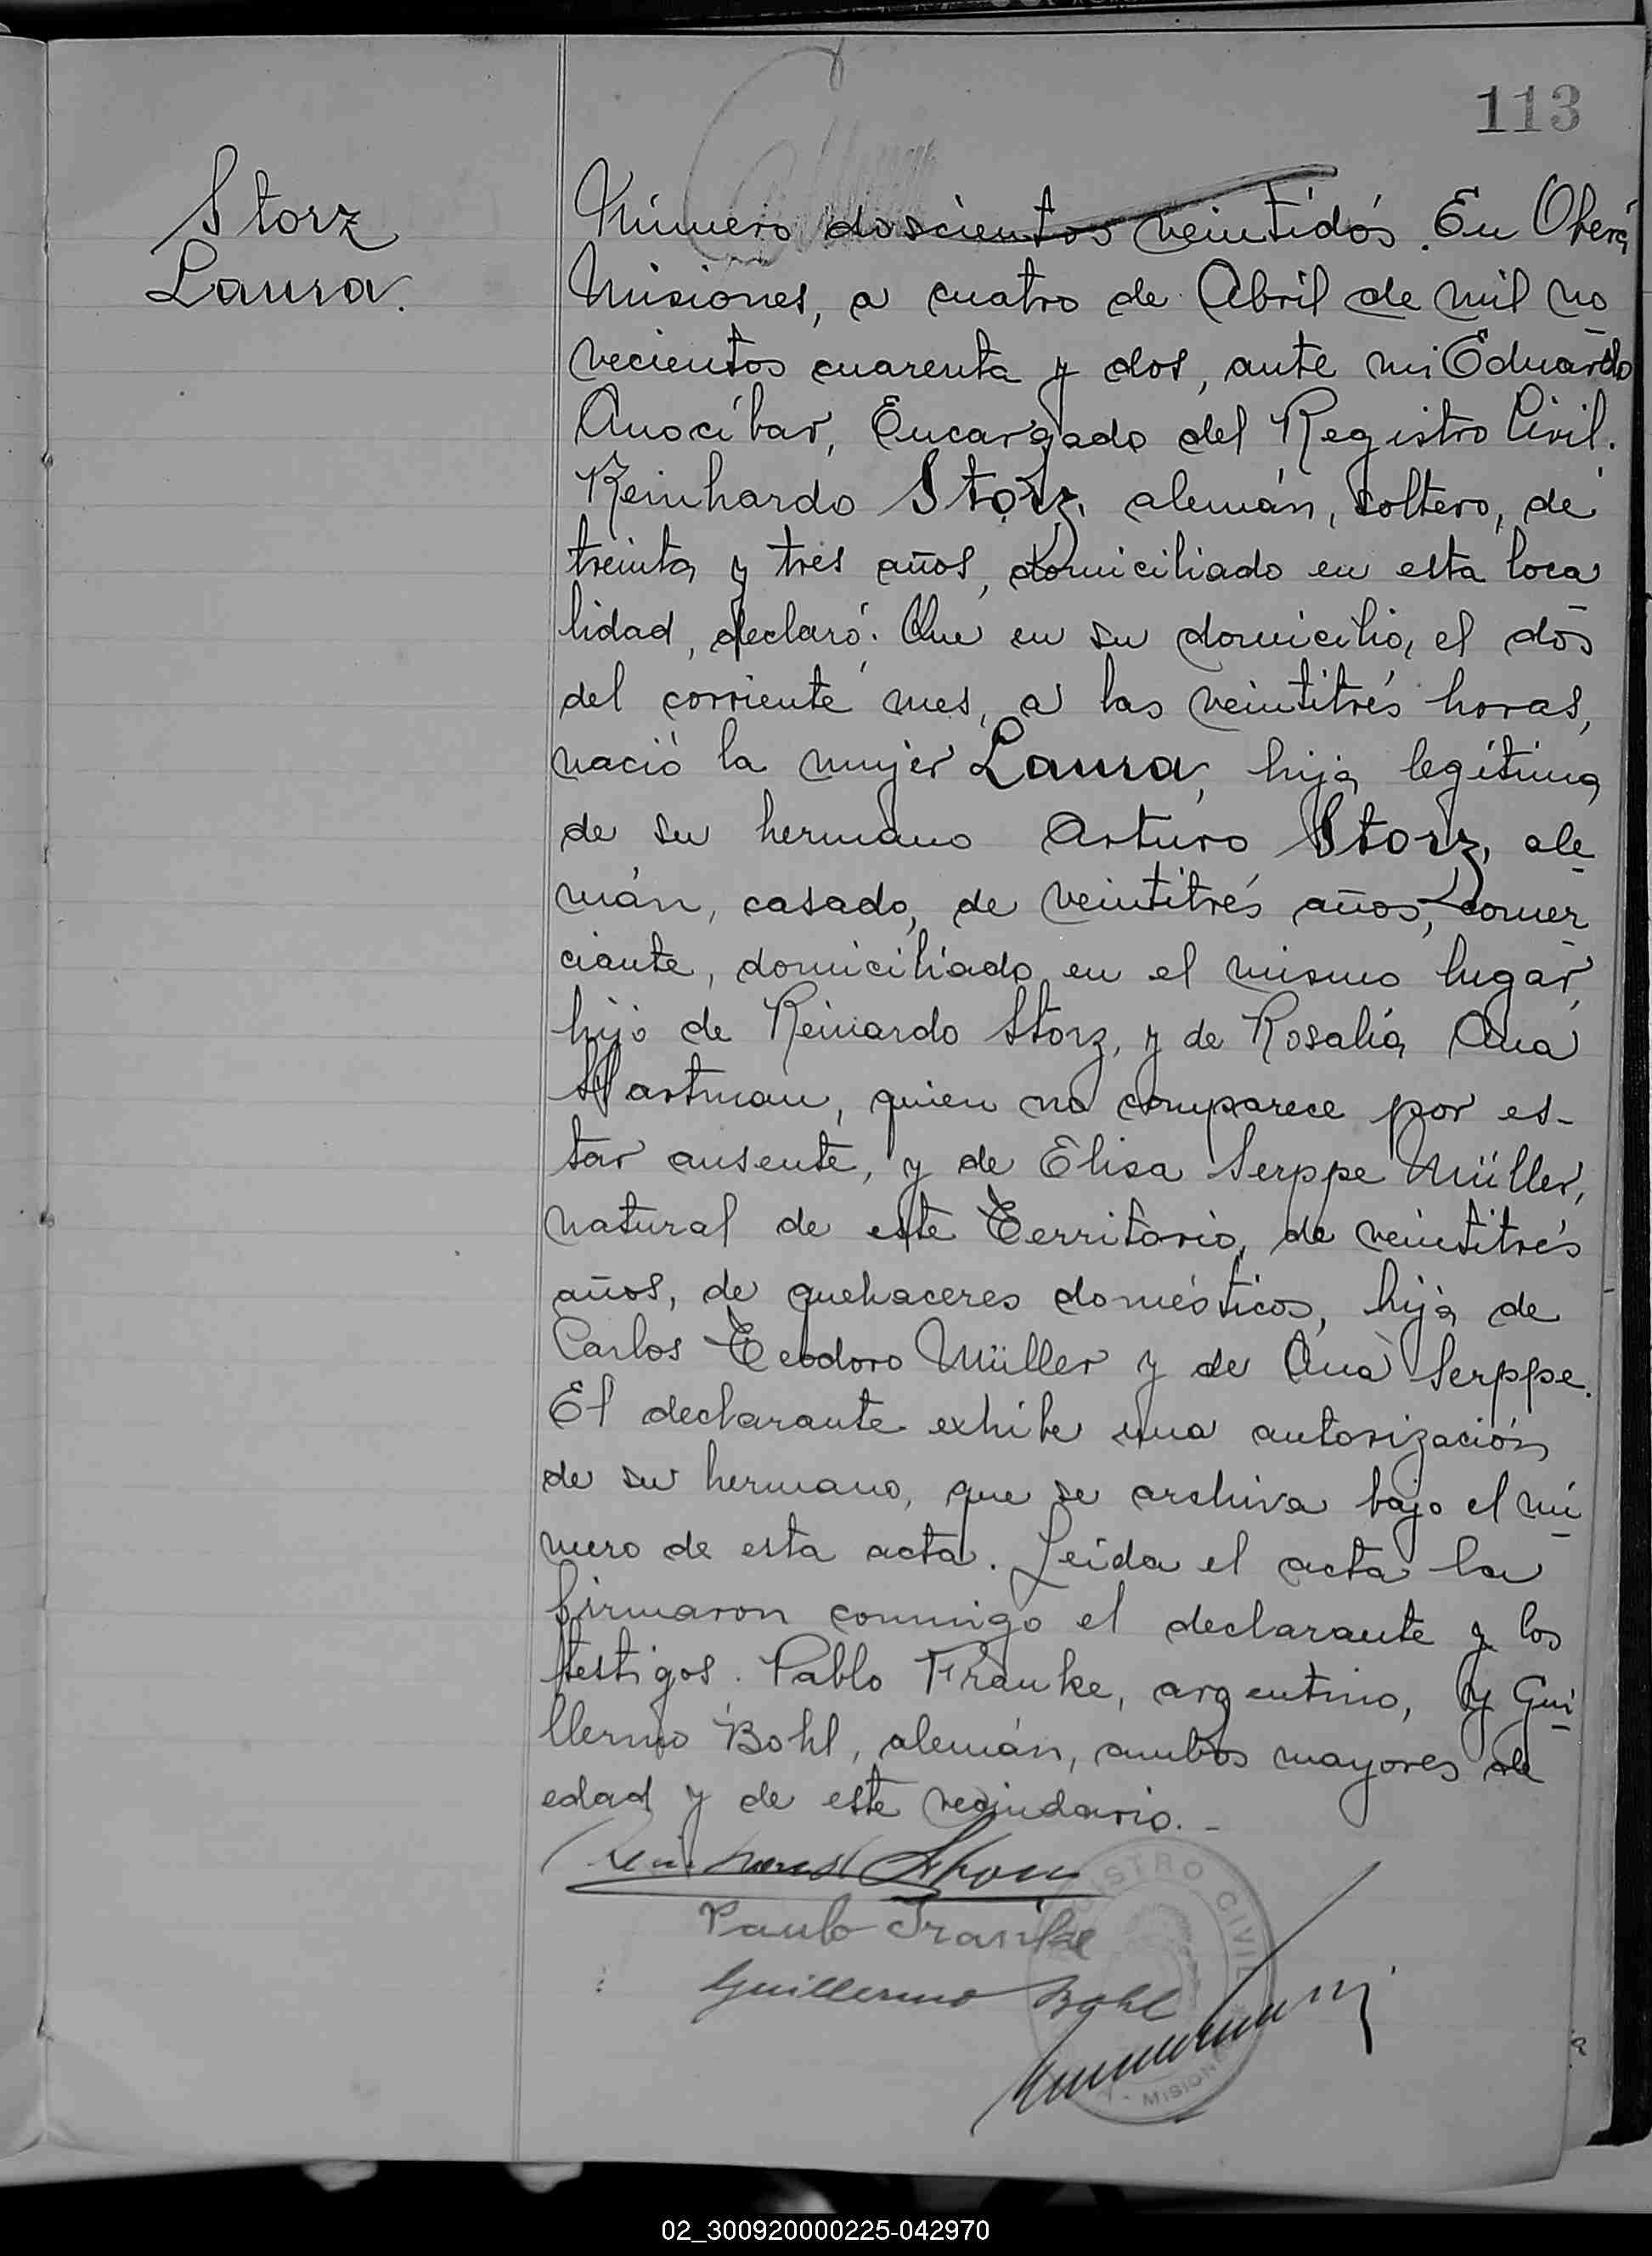 113
Storz
Laura.
Número doscientos veintidós. En Oberá
Misiones, a cuatro de Abril de mil no
vecientos cuarenta y dos, ante mi Eduardo
Anocíbar, Encargado del Registro Civil.
Reinhardo Storz, alemán, soltero, de
treinta y tres años, domiciliado en esta loca
lidad, declaró: Que en su domicilio, el dos
del corriente mes, a las veintitrés horas,
nació la mujer Laura, hija legítima
de su hermano Arturo Storz, ale
mán, casado, de veintitrés años, comer
ciante, domiciliado en el mismo lugar,
hijo de Reinardo Storz, y de Rosalía Ana
Hartman, quien no comparece por es-
tar ausente, y de Elisa Serppe Müller,
natural de este Territorio, de veintitrés
años, de quehaceres domésticos, hija de
Carlos Teodoro Müller y de Ana Serppe.
El declarante exhibe una autorización
de su hermano, que se archiva bajo el nú
mero de esta acta. Leída el acta la
firmaron conmigo el declarante y los
testigos. Pablo Franke, argentino, y Gui
llermo Bohl, alemán, ambos mayores de
edad y de este vecindario. -
Paulo Franke
Guillermo Bohl
REGISTRO CIVIL
MISIONES
02_300920000225-042970